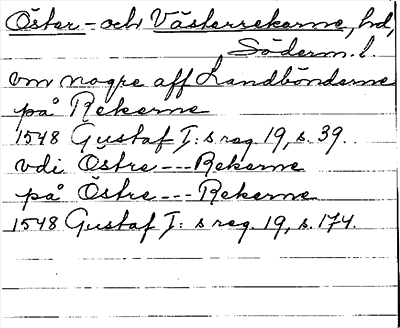 Öster- och Västerrekarne, hd,
Söderm. l.
vm nogre aff Landbönderne
på Rekerne
1548 Gustaf I:s reg. 19, s. 39.
vdi Östre --- Rekerne
på Östre --- Rekerne
1548 Gustaf I:s reg. 19, s. 174.